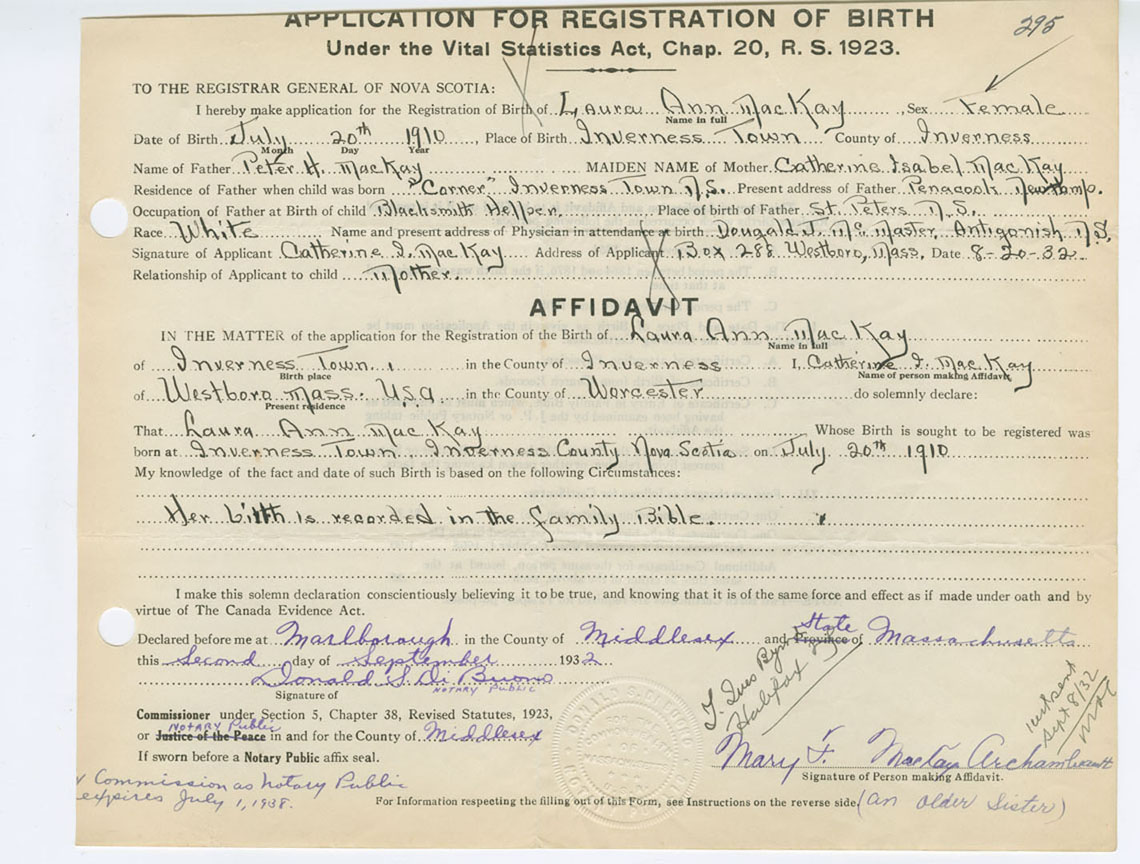 295
APPLICATION FOR REGISTRATION OF BIRTH
Under the Vital Statistics Act, Chap. 20, R. S. 1923.
TO THE REGISTRAR GENERAL OF NOVA SCOTIA:
I hereby make application for the Registration of Birth of Laura Ann MacKay Sex Female
Name in full
Date of Birth July 20th 1910 Place of Birth Inverness Town County of Inverness
Month Day Year
Name of Father Peter H. MacKay MAIDEN NAME of Mother Catherine Isabel MacKay
Residence of Father when child was born "Corner" Inverness Town N.S. Present address of Father Penacook New Hamp.
Occupation of Father at Birth of child Blacksmith Helper. Place of birth of Father St. Peters N.S.
Race White Name and present address of Physician in attendance at birth Dougald J. McMaster, Antigonish N.S.
Signature of Applicant Catherine I. MacKay Address of Applicant Box 288 Westboro, Mass. Date 8-20-32
Relationship of Applicant to child Mother.
AFFIDAVIT
IN THE MATTER of the application for the Registration of the Birth of Laura Ann MacKay
Name in full
of Inverness Town, in the County of Inverness I, Catherine I. MacKay
Birth place Name of person making Affidavit
of Westboro Mass. USA in the County of Worcester do solemnly declare:
Present residence
That Laura Ann MacKay Whose Birth is sought to be registered was
born at Inverness Town Inverness County Nova Scotia on July 20th 1910
My knowledge of the fact and date of such Birth is based on the following Circumstances:
Her birth is recorded in the family Bible.
I make this solemn declaration conscientiously believing it to be true, and knowing that it is of the same force and effect as if made under oath and by
virtue of The Canada Evidence Act.
State
Declared before me at Marlborough in the County of Middlesex and Province of Massachusetts
this Second day of September 1932
Donald S. Di Buono
NOTARY PUBLIC
Signature of
Halifax
Sept 8/32
Commissioner under Section 5, Chapter 38, Revised Statutes, 1923,
NOTARY Public
or Justice of the Peace in and for the County of Middlesex
If sworn before a Notary Public affix seal.
Mary F. MacKay Archambeault
Signature of Person making Affidavit.
(an older Sister)
y Commission as Notary Public
expires July 1, 1938.
For Information respecting the filling out of this Form, see Instructions on the reverse side.